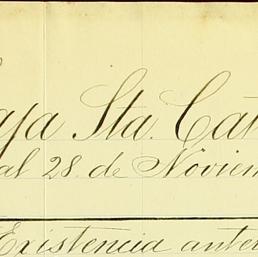 aja Sta. Cat
al 28 de Noviem
Existencia anter